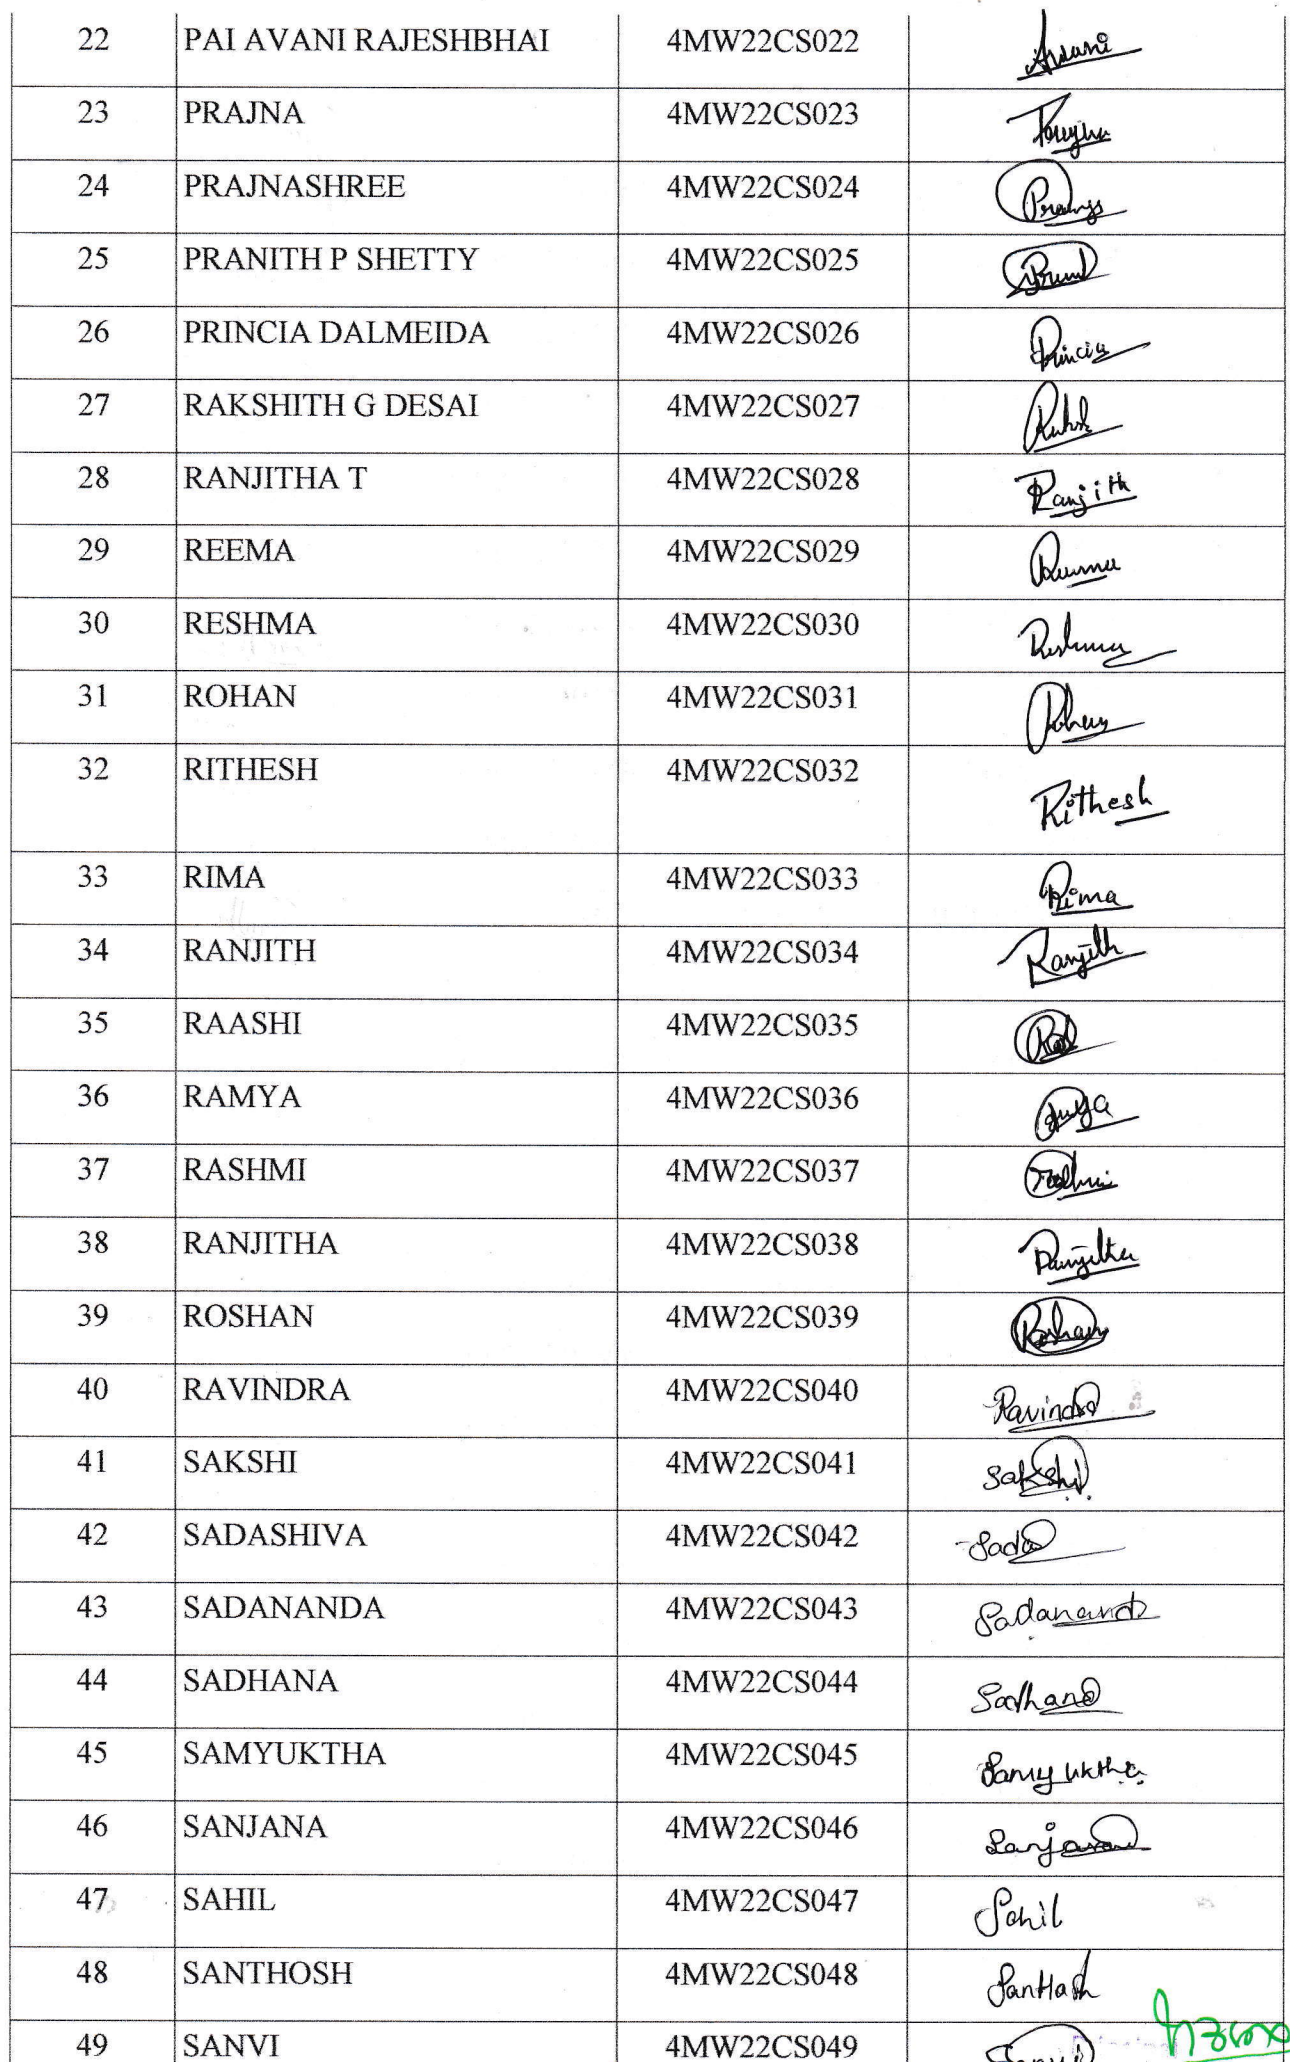 22 PAI AVANI RAJESHBHAI 4MW22CS022 Avani
23 PRAJNA 4MW22CS023 Prajna
24 PRAJNASHREE 4MW22CS024
25 PRANITH P SHETTY 4MW22CS025
26 PRINCIA DALMEIDA 4MW22CS026 Princia
27 RAKSHITH G DESAI 4MW22CS027
28 RANJITHA T 4MW22CS028 Ranjith
29 REEMA 4MW22CS029 Reema
30 RESHMA 4MW22CS030 Reshma
31 ROHAN 4MW22CS031 Rohan
32 RITHESH 4MW22CS032 Rithesh
33 RIMA 4MW22CS033 Rima
34 RANJITH 4MW22CS034 Ranjith
35 RAASHI 4MW22CS035
36 RAMYA 4MW22CS036
37 RASHMI 4MW22CS037 Rashmi
38 RANJITHA 4MW22CS038 Ranjitha
39 ROSHAN 4MW22CS039 Roshan
40 RAVINDRA 4MW22CS040 Ravindra
41 SAKSHI 4MW22CS041 Sakshi
42 SADASHIVA 4MW22CS042 Sada
43 SADANANDA 4MW22CS043 Sadananda
44 SADHANA 4MW22CS044 Sadhana
45 SAMYUKTHA 4MW22CS045 Samyuktha
46 SANJANA 4MW22CS046 Sanjana
47 SAHIL 4MW22CS047 Sahil
48 SANTHOSH 4MW22CS048 Santhosh
49 SANVI 4MW22CS049 Sanvi